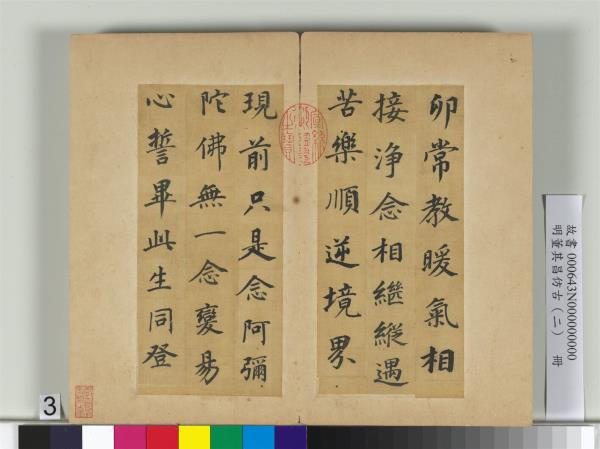 卵常教暖氣相
接淨念相繼縱遇
苦樂順逆境界
現前只是念阿彌
陀佛無一念變易
心誓畢此生同登
故書 000643N000000000
明董其昌仿古（二） 冊
3